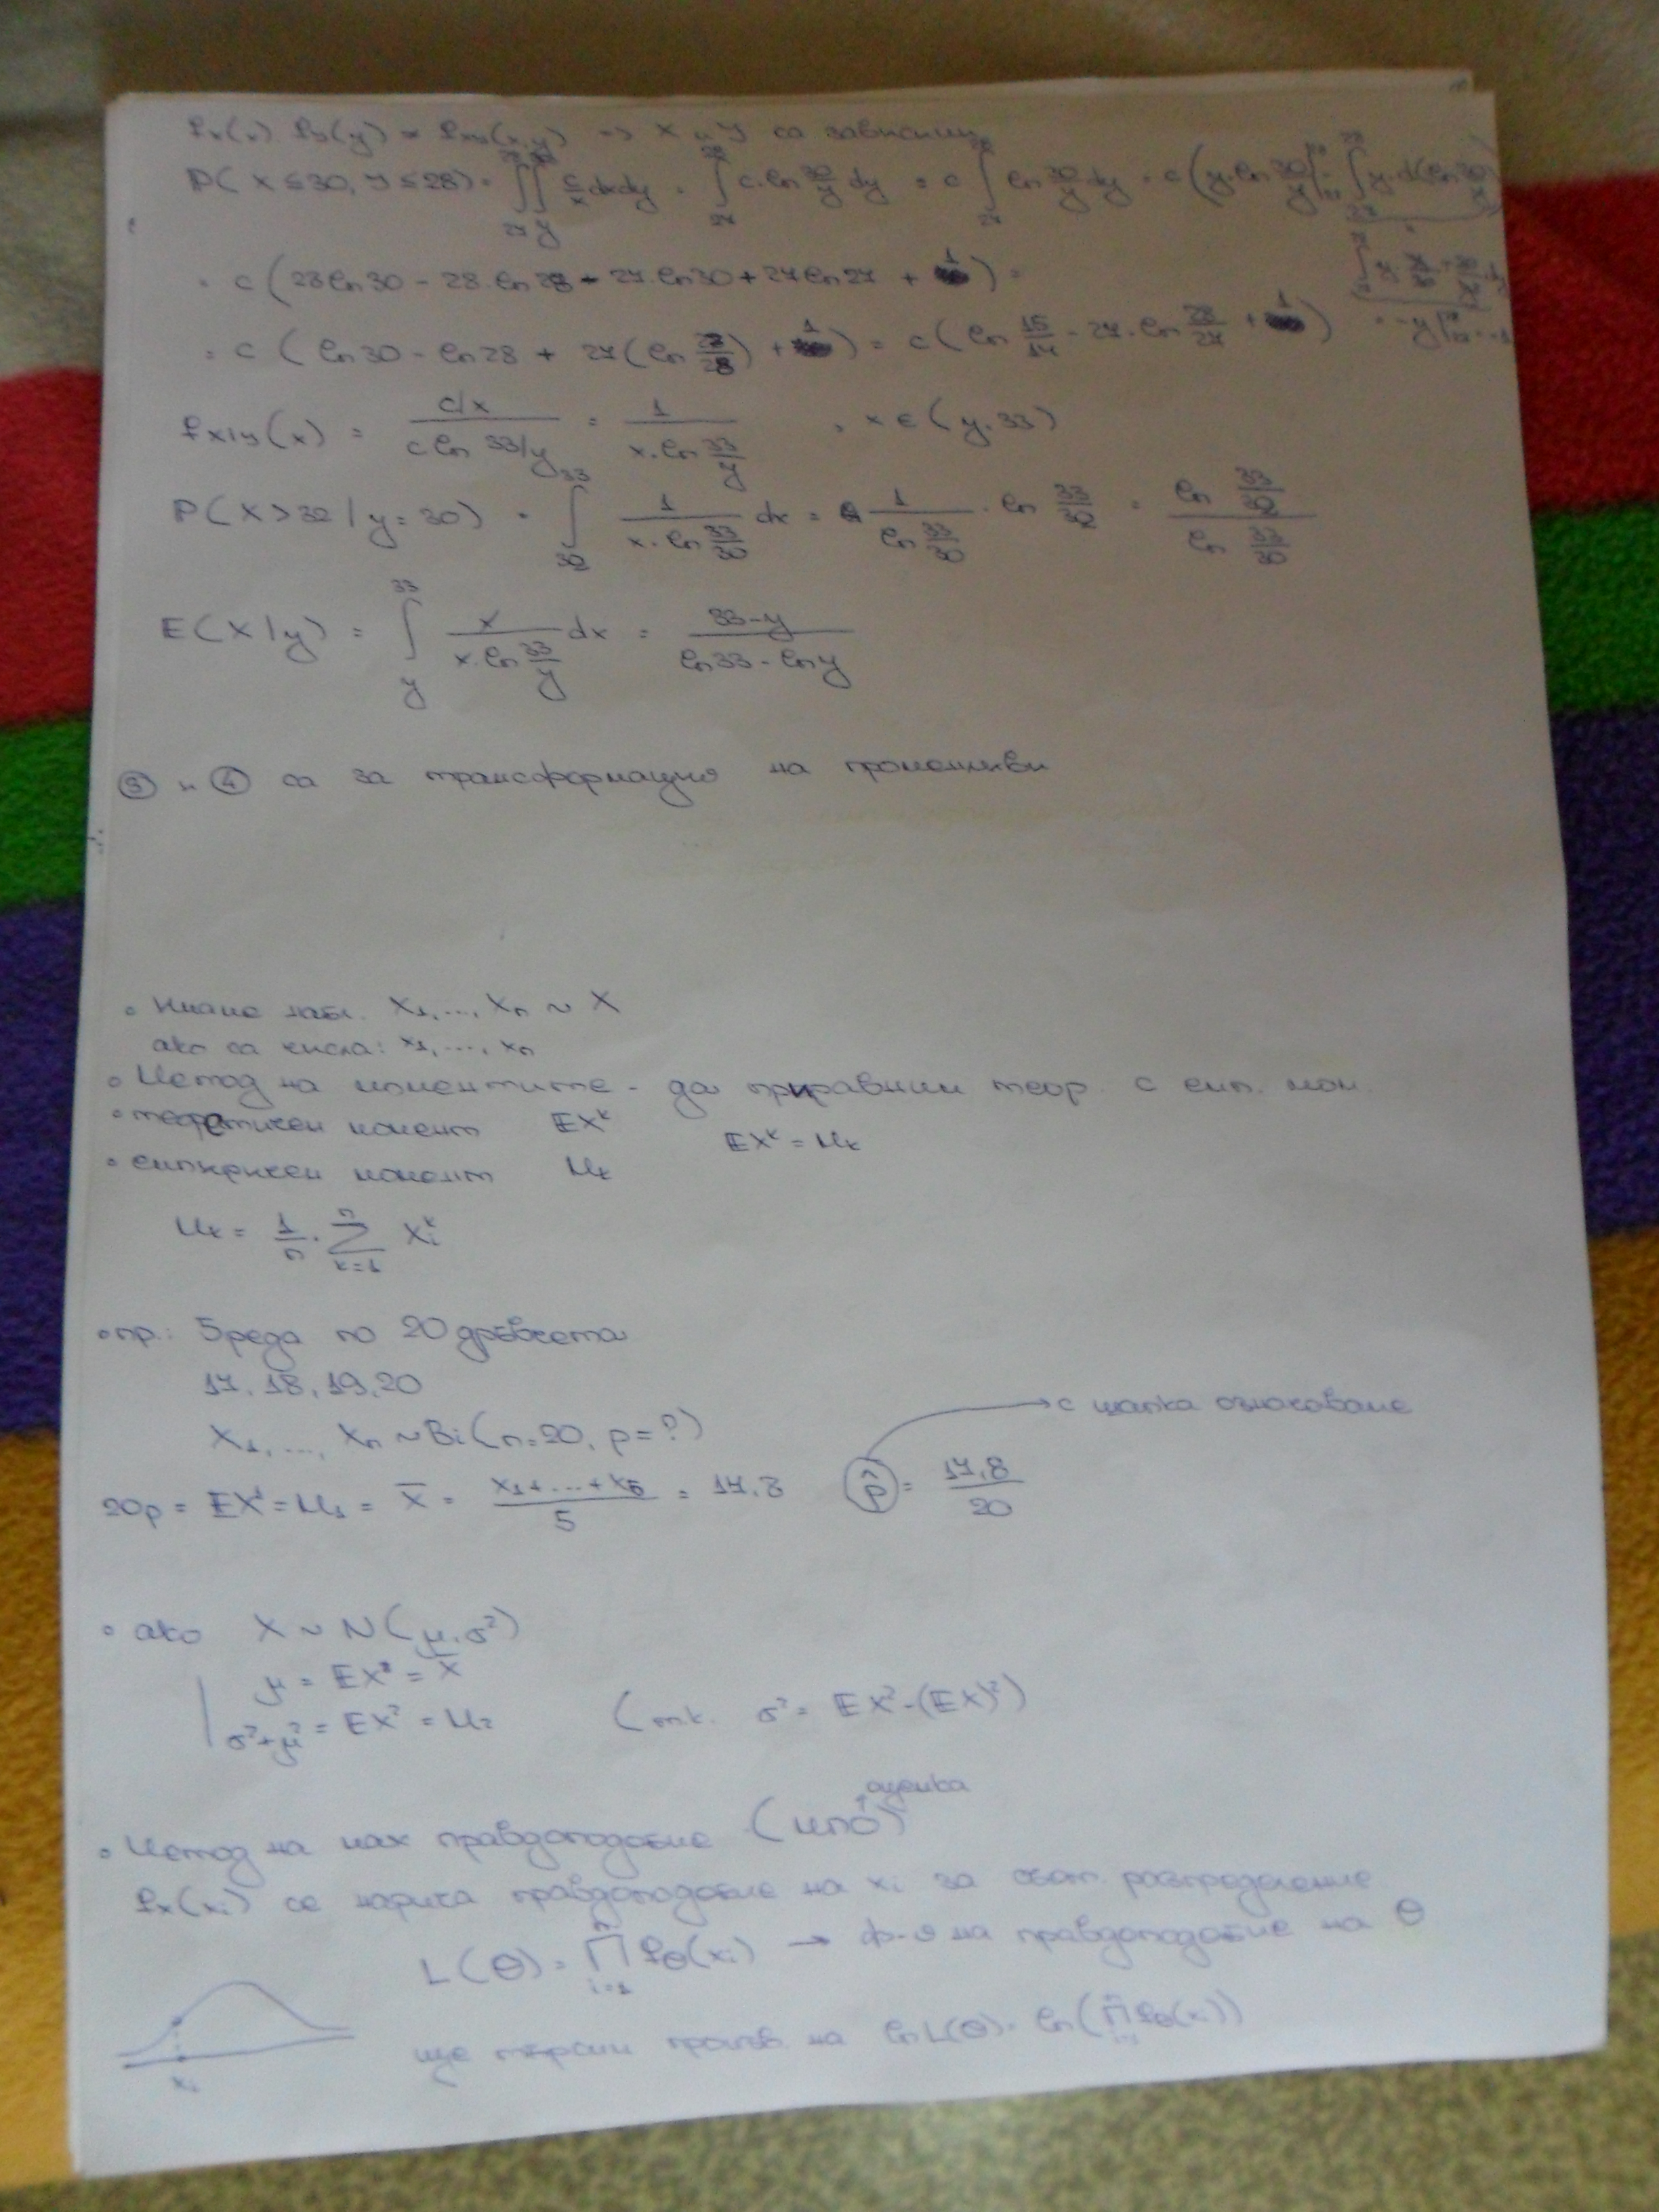 f_x(x) f_y(y) ≠ f_xy(x,y) => X и Y са зависими
P(X≤30, Y≤28) = ∫∫ c/x dxdy = ∫ c.ln 30/y dy = c ∫ ln 30/y dy = c (y.ln 30/y | - ∫ y.d(ln 30/y)
= c (28ln30 - 28.ln28 - 27.ln30 + 27ln27 + 1) =
= c (ln30 - ln28 + 27(ln 27/28) + 1) = c (ln 15/14 - 27.ln 28/27 + 1)
= -y| = -1
f_x|y(x) = c/x / c ln 33/y = 1 / x.ln 33/y , x ∈ (y,33)
P(X>32 | y=30) = ∫_32^33 1 / x.ln 33/30 dx = 1 / ln 33/30 . ln 33/32 = ln 33/32 / ln 33/30
E(X|y) = ∫_y^33 x / x.ln 33/y dx = 33-y / ln33 - lny
③ и ④ са за трансформация на променливи
• Имаме набл. X_1, ..., X_n ~ X
ако са числа: x_1, ..., x_n
• Метод на моментите - да приравним теор. с емп. мом.
• теоретичен момент EX^k EX^k = M_k
• емпиричен момент M_k
M_k = 1/n . Σ_{k=1}^n X_i^k
• пр.: 5 реда по 20 дръвчета
17, 18, 19, 20
X_1, ..., X_n ~ Bi(n=20, p=?)
20p = EX^1 = M_1 = X̄ = x_1+...+x_5 / 5 = 17,8 p̂ = 17,8 / 20 → с шапка означаваме
• ако X ~ N(μ, σ²)
μ = EX = X̄
σ²+μ² = EX² = M_2 (т.к. σ² = EX² - (EX)²)
• Метод на мах правдоподобие (мпо) оценка
f_x(x_i) се нарича правдоподобие на x_i за съот. разпределение
L(θ) = Π_{i=1}^n f_θ(x_i) → ф-я на правдоподобие на θ
x_i
ще търсим произв. на ln L(θ) = ln(Π_{i=1}^n f_θ(x_i))